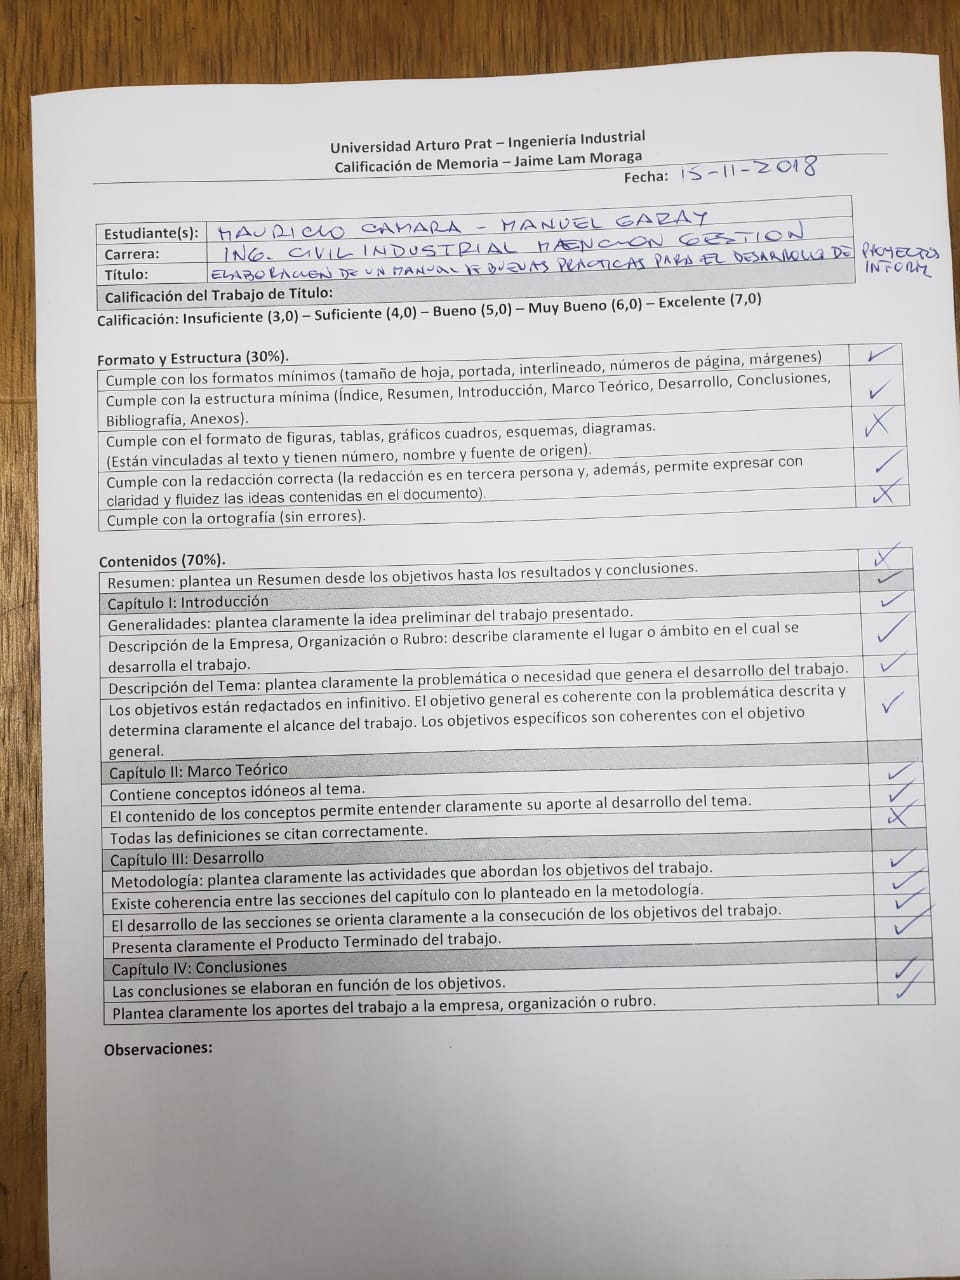 Universidad Arturo Prat – Ingeniería Industrial
Calificación de Memoria – Jaime Lam Moraga
Fecha: 15-11-2018
Estudiante(s): MAURICIO CAMARA - MANUEL GARAY
Carrera: ING. CIVIL INDUSTRIAL MAENCION GESTION
Título: ELABORACION DE UN MANUAL DE BUENAS PRACTICAS PARA EL DESARROLLO DE PROYECTOS
INFORM
Calificación del Trabajo de Título:
Calificación: Insuficiente (3,0) – Suficiente (4,0) – Bueno (5,0) – Muy Bueno (6,0) – Excelente (7,0)
Formato y Estructura (30%).
Cumple con los formatos mínimos (tamaño de hoja, portada, interlineado, números de página, márgenes) ✓
Cumple con la estructura mínima (Índice, Resumen, Introducción, Marco Teórico, Desarrollo, Conclusiones, ✓
Bibliografía, Anexos).
Cumple con el formato de figuras, tablas, gráficos cuadros, esquemas, diagramas. X
(Están vinculadas al texto y tienen número, nombre y fuente de origen).
Cumple con la redacción correcta (la redacción es en tercera persona y, además, permite expresar con ✓
claridad y fluidez las ideas contenidas en el documento).
Cumple con la ortografía (sin errores). X
Contenidos (70%).
Resumen: plantea un Resumen desde los objetivos hasta los resultados y conclusiones. X
Capítulo I: Introducción ✓
Generalidades: plantea claramente la idea preliminar del trabajo presentado. ✓
Descripción de la Empresa, Organización o Rubro: describe claramente el lugar o ámbito en el cual se ✓
desarrolla el trabajo.
Descripción del Tema: plantea claramente la problemática o necesidad que genera el desarrollo del trabajo. ✓
Los objetivos están redactados en infinitivo. El objetivo general es coherente con la problemática descrita y ✓
determina claramente el alcance del trabajo. Los objetivos específicos son coherentes con el objetivo
general.
Capítulo II: Marco Teórico
Contiene conceptos idóneos al tema. ✓
El contenido de los conceptos permite entender claramente su aporte al desarrollo del tema. ✓
Todas las definiciones se citan correctamente. X
Capítulo III: Desarrollo
Metodología: plantea claramente las actividades que abordan los objetivos del trabajo. ✓
Existe coherencia entre las secciones del capítulo con lo planteado en la metodología. ✓
El desarrollo de las secciones se orienta claramente a la consecución de los objetivos del trabajo. ✓
Presenta claramente el Producto Terminado del trabajo. ✓
Capítulo IV: Conclusiones
Las conclusiones se elaboran en función de los objetivos. ✓
Plantea claramente los aportes del trabajo a la empresa, organización o rubro. ✓
Observaciones: